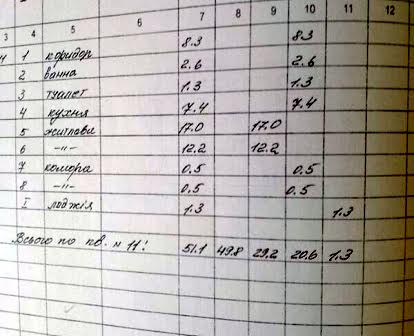 3 4 5 6 7 8 9 10 11 12
4 1 коридор 8.3 8.3
2 ванна 2.6 2.6
3 туалет 1.3 1.3
4 кухня 7.4 7.4
5 житлові 17.0 17.0
6 -"- 12.2 12.2
7 комора 0.5 0.5
8 -"- 0.5 0.5
I лоджія 1.3 1.3
Всього по кв. н 11! 51.1 49.8 29.2 20.6 1.3